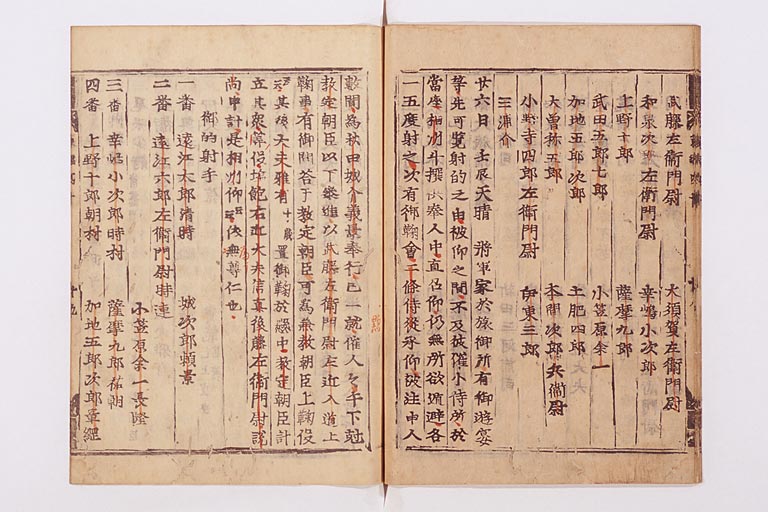 武藤左衛門尉　大須賀左衛門尉
和泉次郎左衛門尉　幸嶋小次郎
上野十郎　薩摩九郎
武田五郎七郎　小笠原余一
加地五郎次郎　土肥四郎
大曽祢五郎　本間次郎兵衛尉
小野寺四郎左衛門尉　伊東三郎
三浦介
廿六日壬辰天晴　将軍家於旅御所有御遊宴
等先可覧射的之由被仰之間不及被催小侍所於
当座相州斗撰供奉人中直召仰仍無所欲遁避各
一五度射之次有御鞠会二条侍従承仰被注申人
数間為秋田城介義景奉行已一就催人々手下尅
教定朝臣以下参進以武藤左衛門尉左近入道上
鞠事有御問答于教定朝臣可為兼教朝臣上鞠役
其後大夫雅有十歳置御鞠於懸中教定朝臣計
立其衆等役地鉋右近大夫信真後藤左衛門尉
尚申計是相州仰云後無尋仁也
御的射手
一番　遠江太郎清時　城次郎頼景
二番　遠江六郎左衛門尉時連
小笠原余一長隆
三番　幸嶋小次郎時村　薩摩九郎祐朝
四番　上野十郎朝村　加地五郎次郎章継